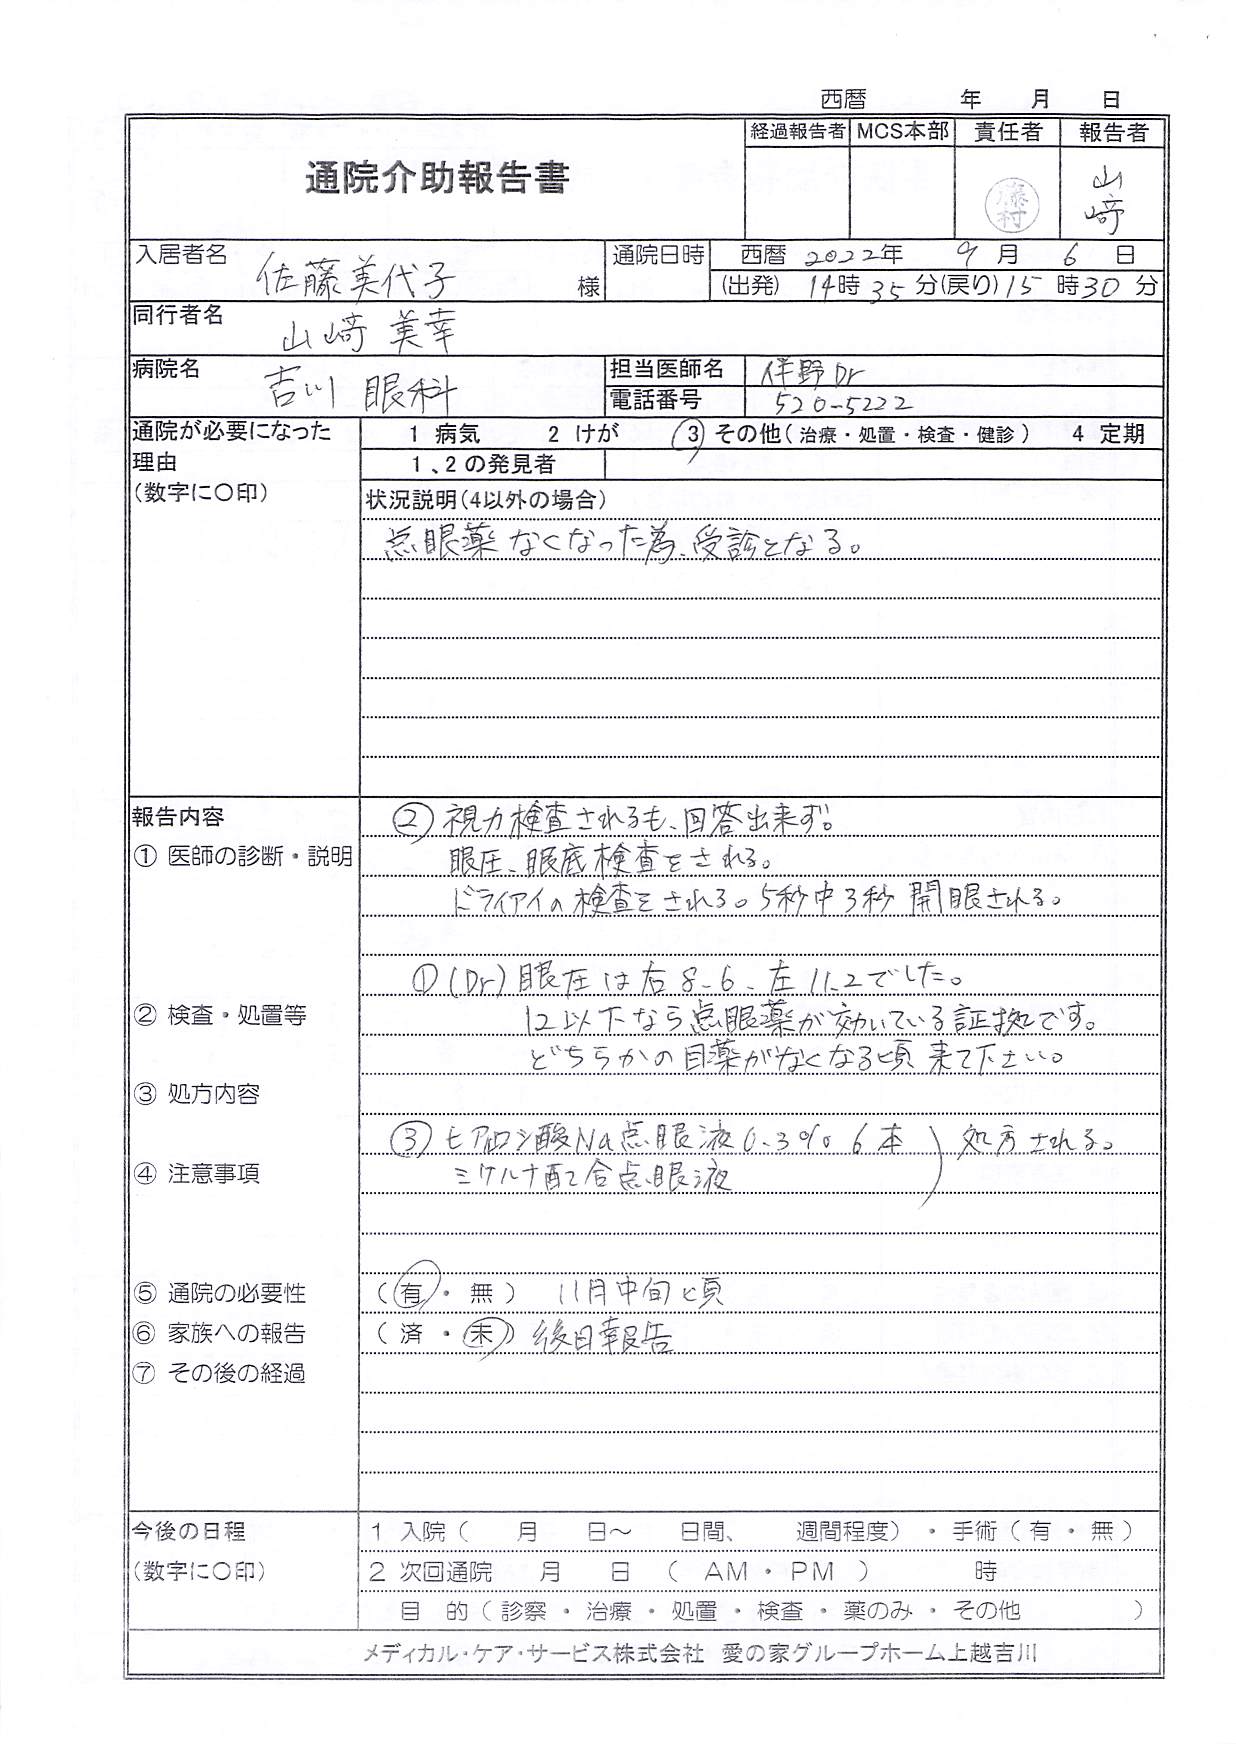 西暦 年 月 日
通院介助報告書
経過報告者 MCS本部 責任者 報告者
藤村 山﨑
入居者名 佐藤美代子 様
通院日時 西暦 2022年 9月 6日
(出発) 14時 35分(戻り)15時30分
同行者名 山﨑 美幸
病院名 吉川 眼科
担当医師名 伴野Dr
電話番号 520-5222
通院が必要になった
理由
(数字に〇印)
1 病気 2 けが ③ その他(治療・処置・検査・健診) 4 定期
1、2の発見者
状況説明(4以外の場合)
点眼薬なくなった為、受診となる。
報告内容
① 医師の診断・説明
② 検査・処置等
③ 処方内容
④ 注意事項
② 視力検査されるも、回答出来ず。
眼圧、眼底検査をされる。
ドライアイの検査をされる。5秒中3秒開眼される。
① (Dr) 眼圧は右8.6、左11.2でした。
12以下なら点眼薬が効いている証拠です。
どちらかの目薬がなくなる頃来て下さい。
③ ヒアルロン酸Na点眼液0.3% 6本 ) 処方される。
ミケルナ配合点眼液
⑤ 通院の必要性 (有・無) 11月中旬頃
⑥ 家族への報告 (済・未) 後日報告
⑦ その後の経過
今後の日程
(数字に〇印)
1 入院( 月 日~ 日間、 週間程度)・手術(有・無)
2 次回通院 月 日 ( AM・PM ) 時
目 的(診察・治療・処置・検査・薬のみ・その他 )
メディカル・ケア・サービス株式会社 愛の家グループホーム上越吉川